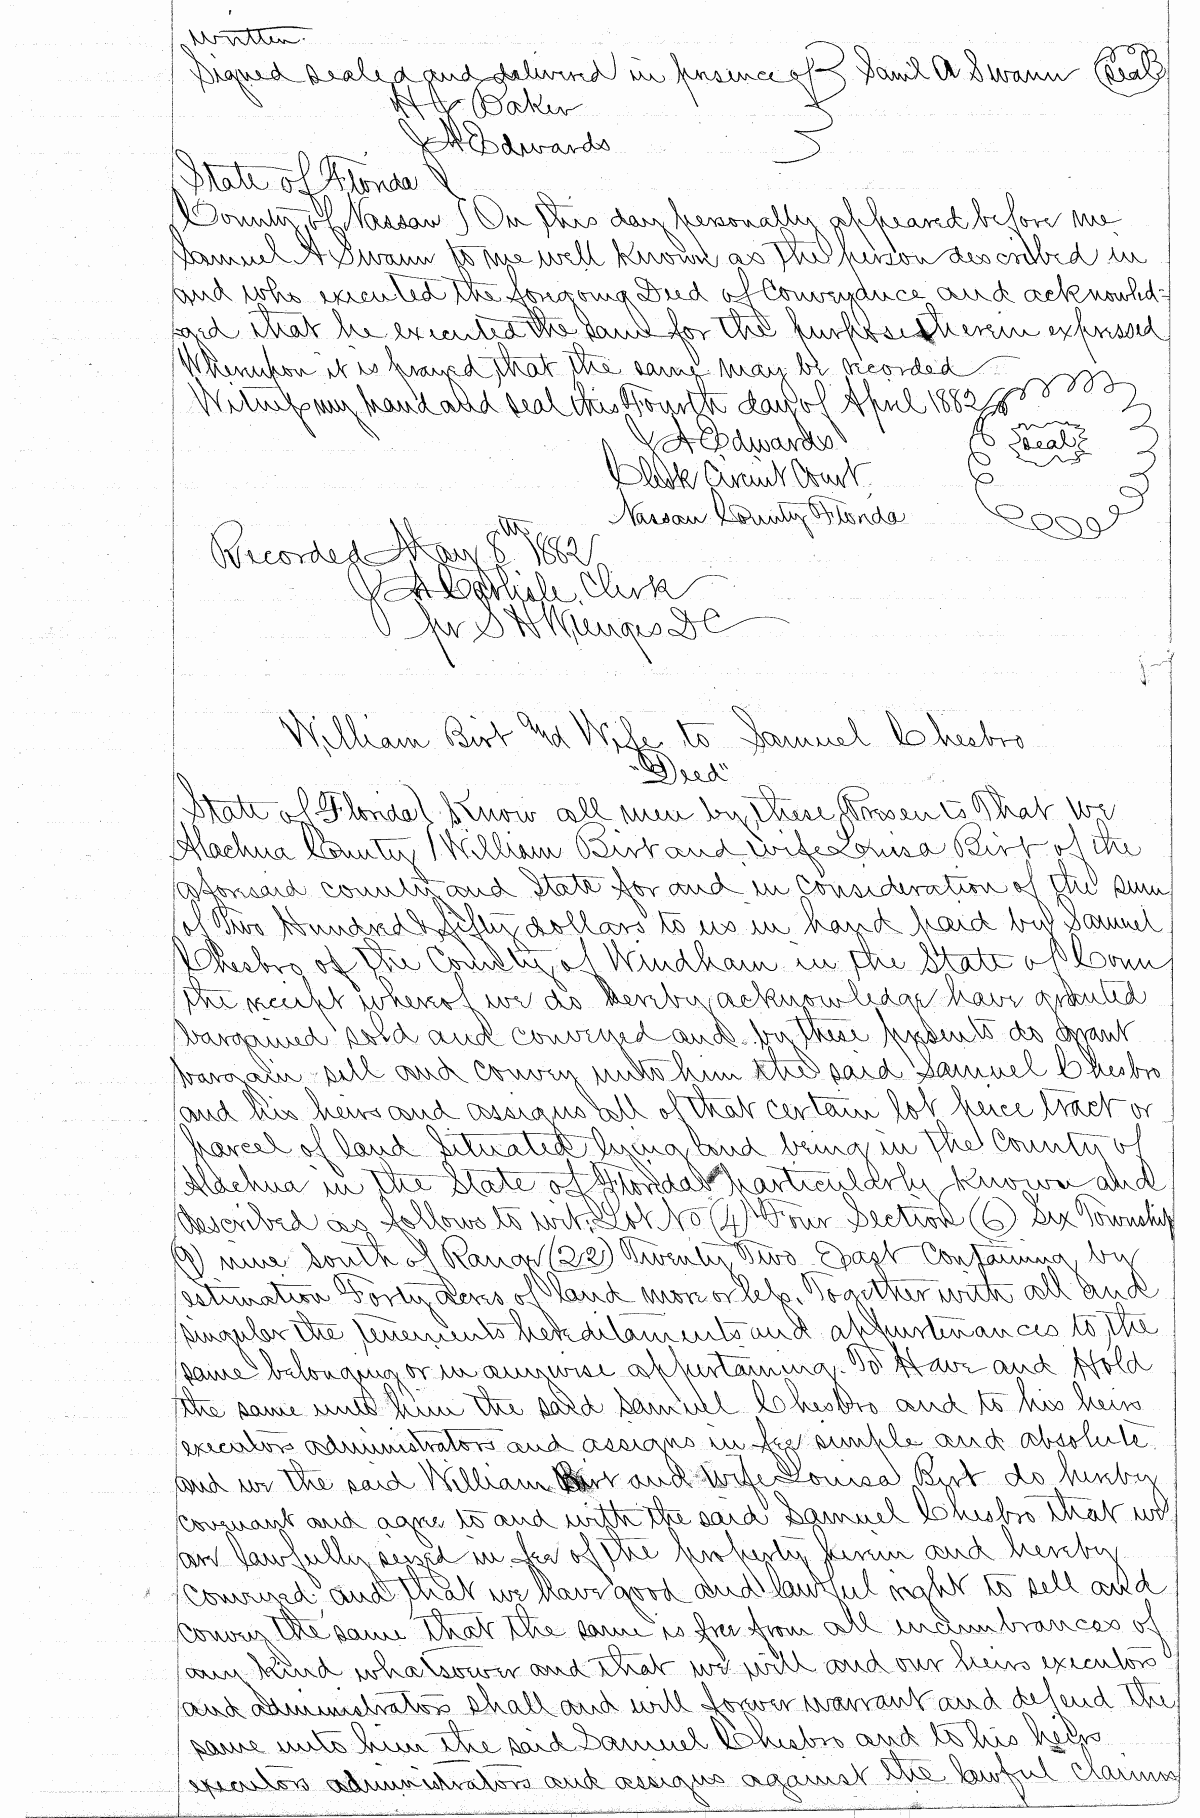 written.
Signed sealed and delivered in presence of } Saml A Swann (Seal)
H J Baker
J A Edwards
State of Florida
County of Nassau } On this day personally appeared before me
Samuel A Swann to me well known as the person described in
and who executed the foregoing Deed of Conveyance and acknowled-
ged that he executed the same for the purposes therein expressed
Whereupon it is prayed that the same may be recorded
Witness my hand and seal this Fourth day of April 1882
J A Edwards
(seal)
Clerk Circuit Court
Nassau County Florida
Recorded May 8th 1882
J A Carlisle, Clerk
per S H Wienges DC
William Birt and Wife to Samuel Chesbro
"Deed"
State of Florida } Know all men by these Presents That We
Alachua County } William Birt and wife Louisa Birt of the
aforesaid county and State for and in consideration of the sum
of Two Hundred & fifty dollars to us in hand paid by Samuel
Chesbro of the County of Windham in the State of Conn
the receipt whereof we do hereby acknowledge have granted
bargained sold and conveyed and by these presents do grant
bargain sell and convey unto him the said Samuel Chesbro
and his heirs and assigns all of that certain lot peice tract or
parcel of land situated lying and being in the County of
Alachua in the State of Florida particularly known and
described as follows to wit: Lot No (4) Four Section (6) Six Township
(9) nine South of Range (22) Twenty Two East Containing by
estimation Forty Acres of land more or less. Together with all and
singular the tenements hereditaments and appurtenances to the
same belonging or in anywise appertaining. To Have and Hold
the same unto him the said Samuel Chesbro and to his heirs
executors administrators and assigns in fee simple and absolute
and we the said William Birt and wife Louisa Birt do hereby
covenant and agree to and with the said Samuel Chesbro that we
are lawfully seized in fee of the property herein and hereby
conveyed, and that we have good and lawful right to sell and
convey the same that the same is free from all incumbrances of
any kind whatsoever and that we will and our heirs executors
and administrators shall and will forever warrant and defend the
same unto him the said Samuel Chesbro and to his heirs
executors administrators and assigns against the lawful claims